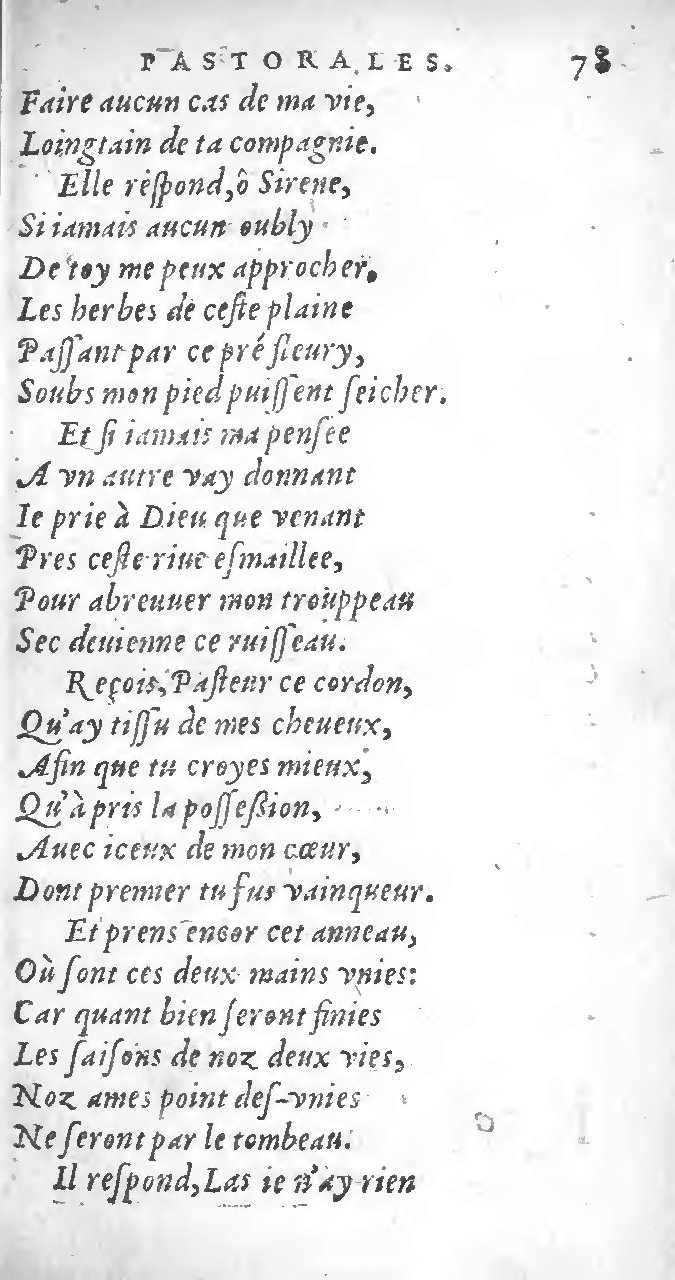 PASTORALES. 78
Faire aucun cas de ma vie,
Loingtain de ta compagnie.
Elle reſpond, ô Sirene,
Si iamais aucun oubly
De toy me peux approcher,
Les herbes de ceſte plaine
Paſſant par ce pré fleury,
Soubs mon pied puiſſent ſeicher.
Et ſi iamais ma penſée
A vn autre vay donnant
Ie prie à Dieu que venant
Pres ceſte riue eſmaillee,
Pour abreuuer mon trouppeau
Sec deuienne ce ruiſſeau.
Reçois, Paſteur ce cordon,
Qu'ay tiſſu de mes cheueux,
Afin que tu croyes mieux,
Qu'à pris la poſſeßion,
Auec iceux de mon cœur,
Dont premier tu fus vainqueur.
Et prens encor cet anneau,
Où ſont ces deux mains vnies:
Car quant bien ſeront finies
Les ſaiſons de noz deux vies,
Noz ames point deſ-vnies
Ne ſeront par le tombeau.
Il reſpond, Las ie n'ay rien